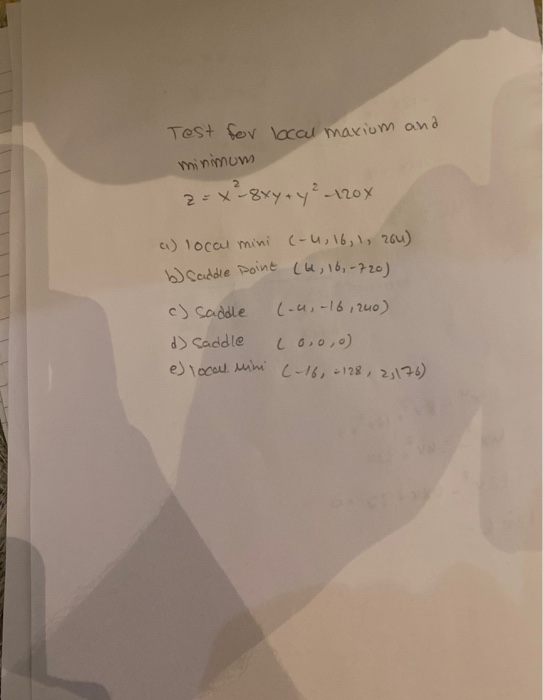 Test for local maxium and
minimum
z = x²-8xy+y²-120x
a) local mini (-4,16,1,264)
b) Saddle Point (4,16,-720)
c) Saddle (-4,-16,240)
d) Saddle (0,0,0)
e) local mini (-16,-128, 2,176)